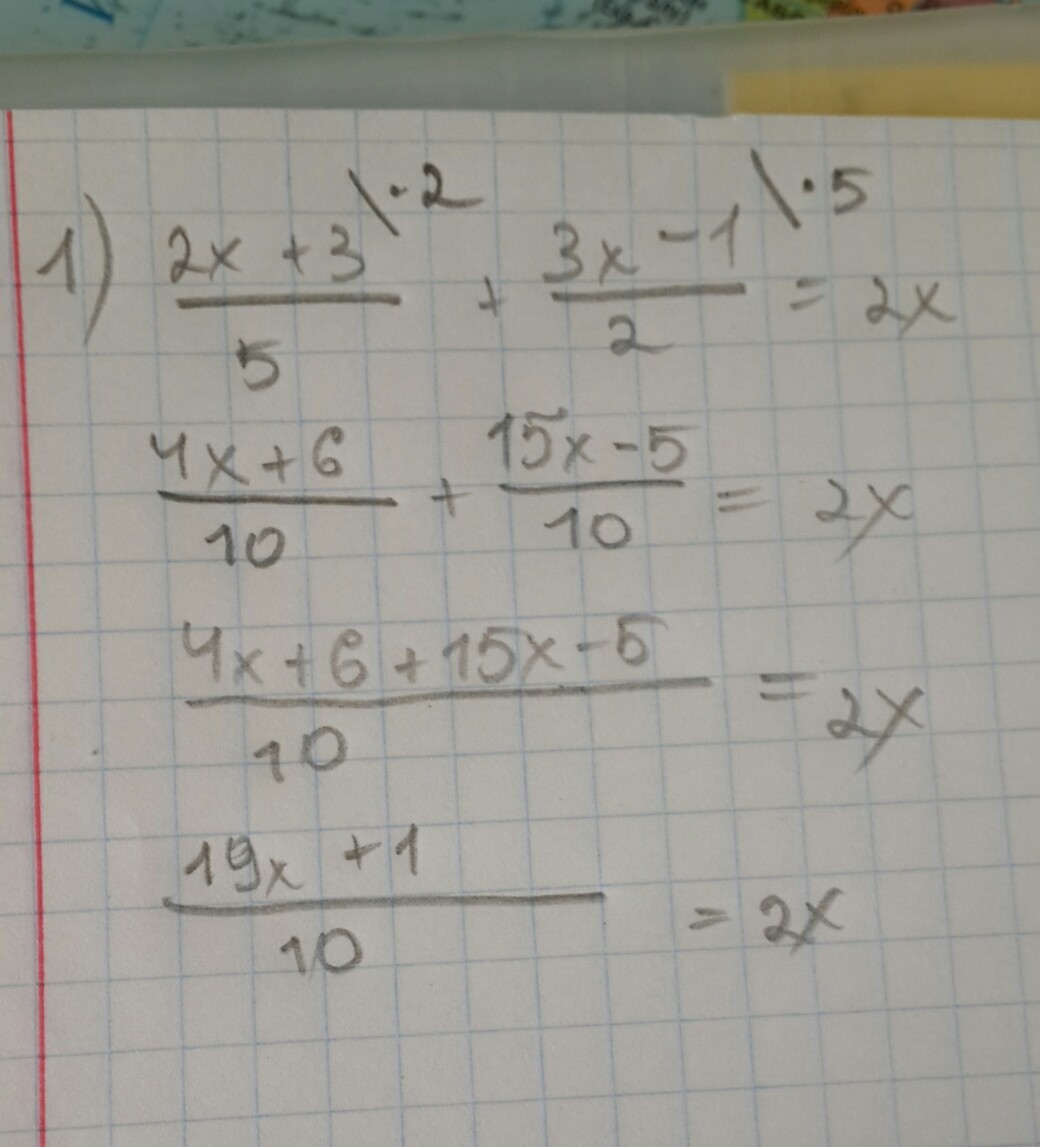 1) \frac{2x + 3}{5} \·2 + \frac{3x - 1}{2} \·5 = 2x
\frac{4x + 6}{10} + \frac{15x - 5}{10} = 2x
\frac{4x + 6 + 15x - 5}{10} = 2x
\frac{19x + 1}{10} = 2x